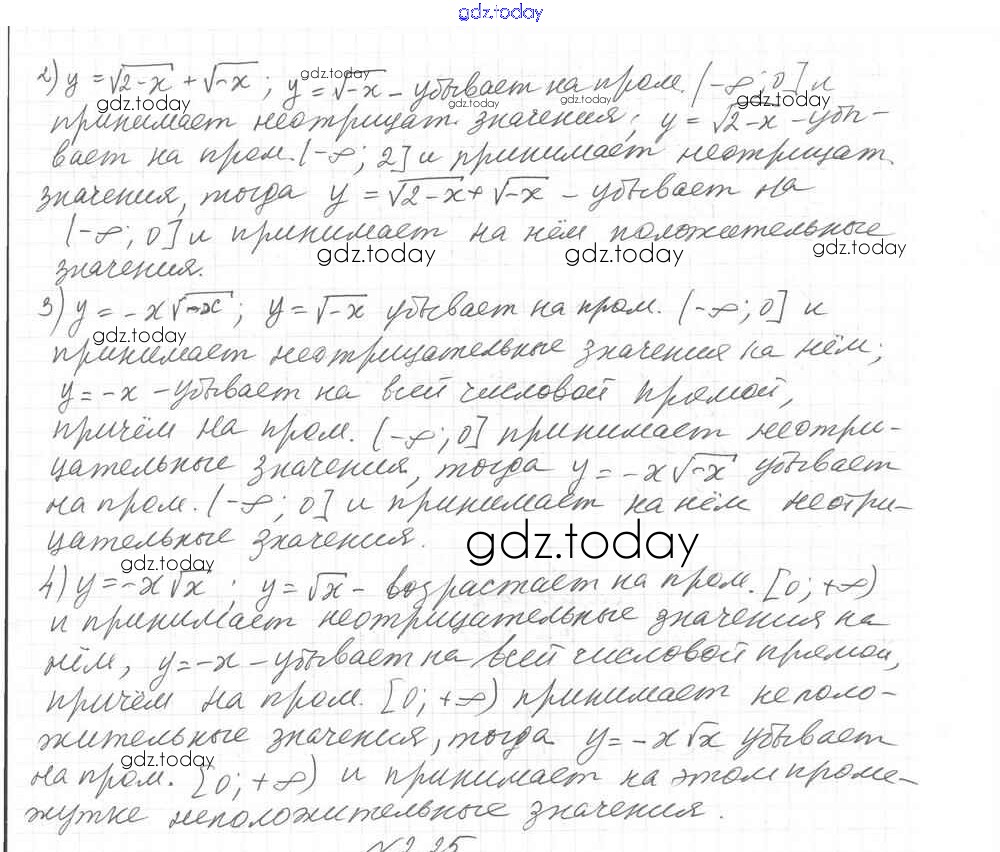 gdz.today
2) y = √2-x + √-x ; y = √-x - убывает на пром. (-∞; 0] и
gdz.today
gdz.today gdz.today gdz.today gdz.today
принимает неотрицат. значения; y = √2-x - убы-
вает на пром. (-∞; 2] и принимает неотрицат.
значения, тогда y = √2-x + √-x - убывает на
(-∞; 0] и принимает на нём положительные
gdz.today gdz.today gdz.today
значения.
3) y = -x√-x ; y = √-x убывает на пром. (-∞; 0] и
gdz.today
принимает неотрицательные значения на нём;
y = -x - убывает на всей числовой прямой,
причём на пром. (-∞; 0] принимает неотри-
цательные значения, тогда y = -x√-x убывает
на пром. (-∞; 0] и принимает на нём неотри-
цательные значения.
gdz.today
gdz.today
4) y = -x√x ; y = √x - возрастает на пром. [0; +∞)
и принимает неотрицательные значения на
нём, y = -x - убывает на всей числовой прямой,
причём на пром. [0; +∞) принимает неполо-
жительные значения, тогда y = -x√x убывает
gdz.today
на пром. [0; +∞) и принимает на этом проме-
жутке неположительные значения.
№2.25